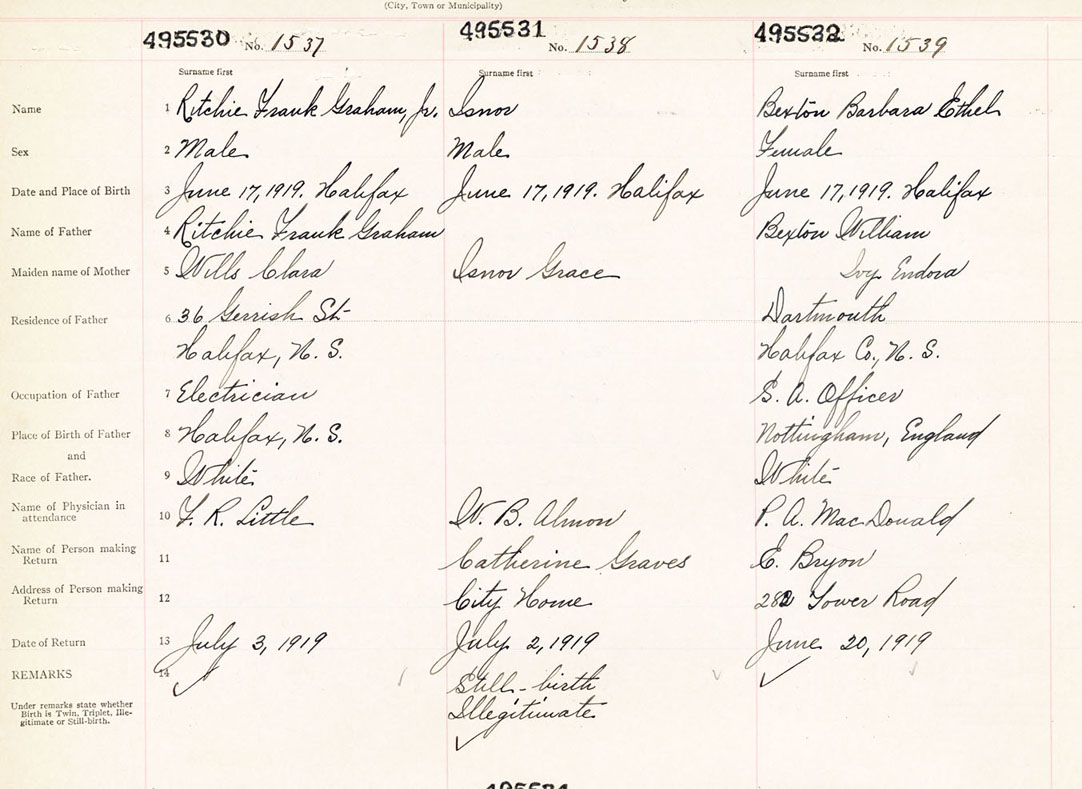 (City, Town or Municipality)
495530 No. 1537 495531 No. 1538 495532 No. 1539
Surname first Surname first Surname first
Name 1 Ritchie Frank Graham, Jr. Isnor Bexton Barbara Ethel
Sex 2 Male Male Female
Date and Place of Birth 3 June 17, 1919. Halifax June 17, 1919. Halifax June 17, 1919. Halifax
Name of Father 4 Ritchie Frank Graham Bexton William
Maiden name of Mother 5 Wills Clara Isnor Grace Ivy Endora
Residence of Father 6 36 Gerrish St. Dartmouth
Halifax, N. S. Halifax Co., N. S.
Occupation of Father 7 Electrician S. A. Officer
Place of Birth of Father 8 Halifax, N. S. Nottingham, England
and
Race of Father. 9 White White
Name of Physician in
attendance 10 F. R. Little W. B. Almon P. A. MacDonald
Name of Person making
Return 11 Catherine Graves E. Bryon
Address of Person making
Return 12 City Home 282 Tower Road
Date of Return 13 July 3, 1919 July 2, 1919 June 20, 1919
REMARKS 14 Still-birth
Under remarks state whether
Birth is Twin, Triplet, Ille-
gitimate or Still-birth.
Illegitimate